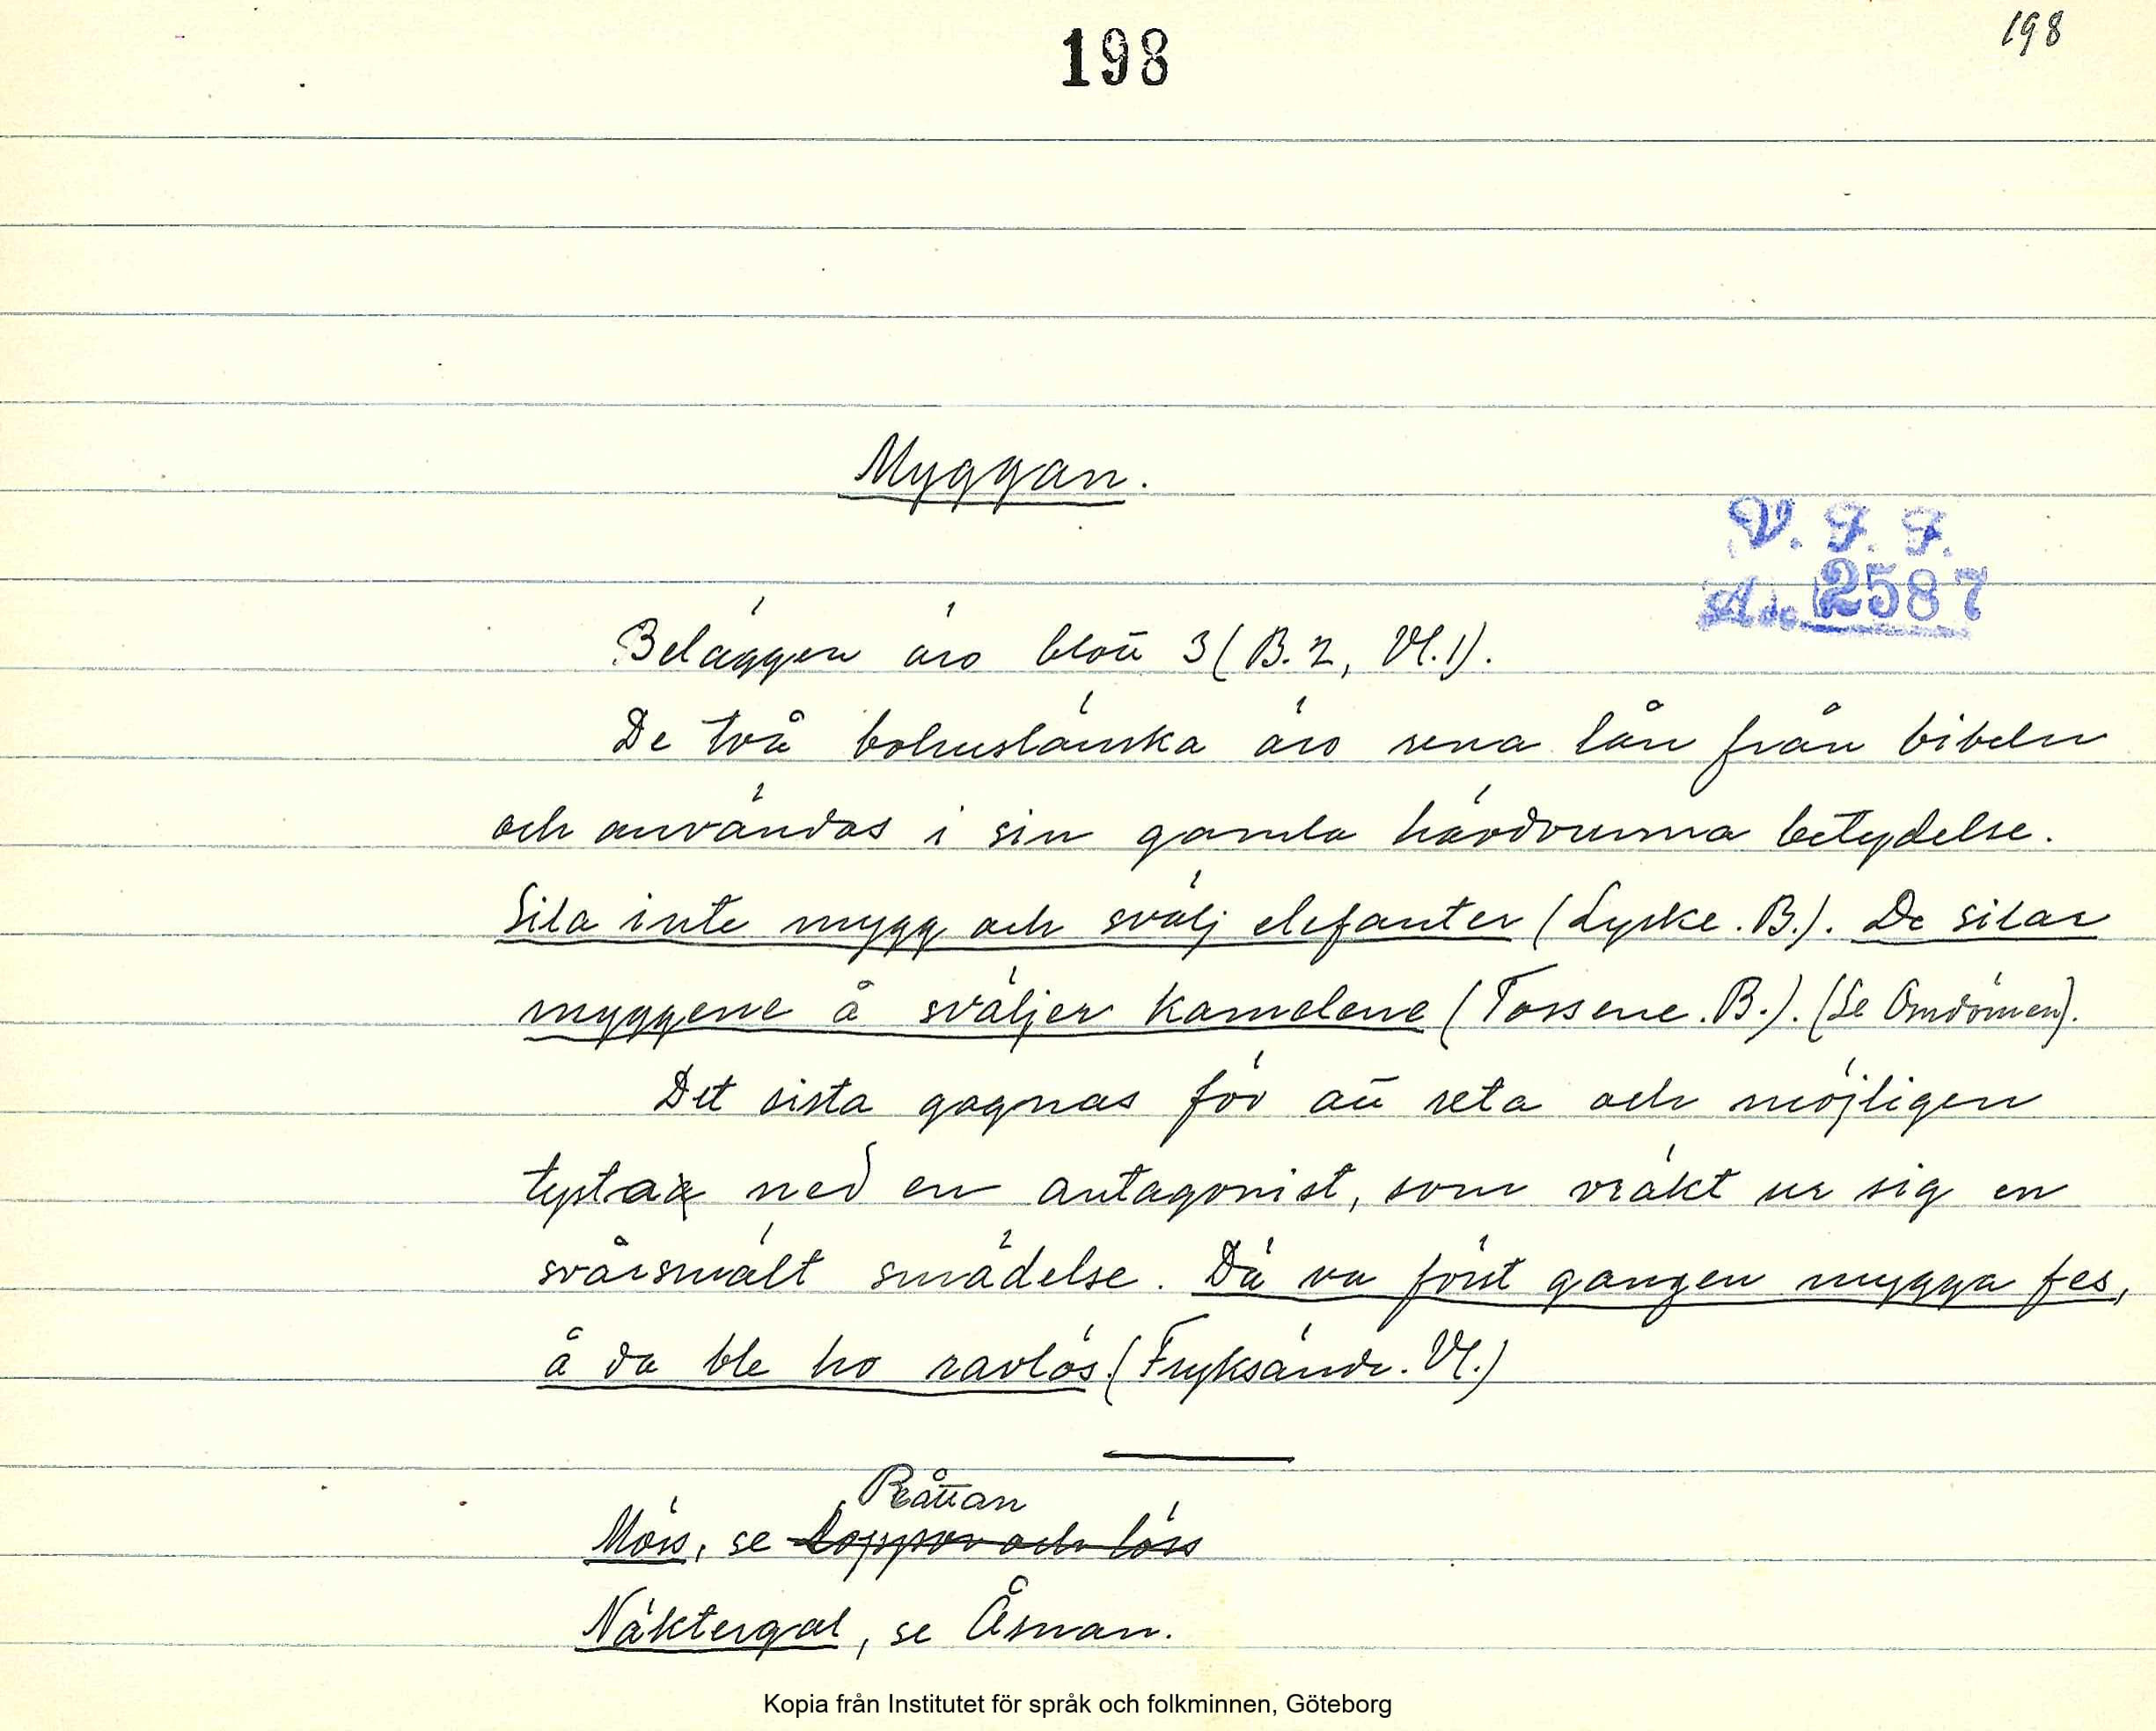 198
198
Myggan.
V. F. F.
Acc. 2587
Beläggen äro blott 3 (B. 2, Vl. 1).
De två bohuslänska äro rena lån från bibeln
och användas i sin gamla hävdvunna betydelse.
Sila inte mygg och svälj elefanter (Lyske. B.). De silar
myggene å sväljer kamelene (Tossene. B.). (Se Omdömen).
Det sista gagnas för att reta och möjligen
tysta ned en antagonist, som vräkt ur sig en
svårsmält smädelse. Dä va föst gangen mygga fes,
å da ble ho ravlös. (Fryksände. Vl.)
Råttan
Möss, se Loppor och löss
Näktergal, se Åsnan.
Kopia från Institutet för språk och folkminnen, Göteborg